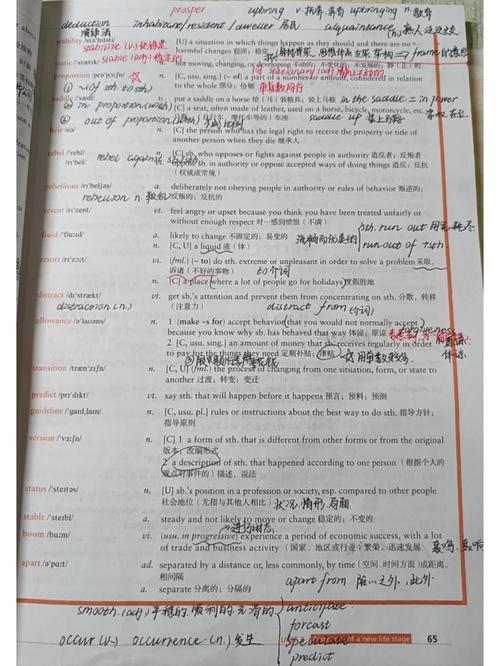 prosper upbring v. 抚养,养育 upbringing n. 教育
deduction inhabitant/resident/dweller 居民 acquaintance (n.)
演绎法
stability /stə'bɪləti/ [U] a situation in which things happen as they should and there are no
harmful changes 稳固;稳定
stable (adj) 稳定的
static /'stætɪk/ not moving, changing, or developing 不动的;不变化的;不发展的;静(止)的
同 stationary (adj) 静止不动的
proportion /prə'pɔːʃn/ n. [C, usu. sing.] (~ of) a part of a number or amount, considered in relation
to the whole 部分;份额 单复数同行
① ~ of sth to sth
② in proportion (with)
③ out of proportion (with)
saddle /'sædl/ vt. put a saddle on a horse 给(马)装鞍具,装上马鞍 in the saddle = in power
n. [C] a seat, often made of leather, used on a horse, bicycle, motorcycle, etc.
车座 saddle up 装上马鞍
heir /eə/ n. [C] the person who has the legal right to receive the property or title of
another person when they die 继承人
rebel /'rebl/ n. [C] sb. who opposes or fights against people in authority 造反者;反叛者
/rɪ'bel/ vi. oppose sb. in authority or oppose accepted ways of doing things 造反;反抗
(权威或常规)
rebel against sb/sth
rebellious /rɪ'beljəs/ a. deliberately not obeying people in authority or rules of behavior 叛逆的;
反叛的;反抗的
rebellion n. 叛乱
resent /rɪ'zent/ vt. feel angry or upset because you think you have been treated unfairly or
without enough respect 对…感到愤恨(不满)
fluid /'fluːɪd/ a. likely to change 不固定的;易变的 流畅而优美的 sth. run out 用完,耗尽
n. [C, U] a liquid 液(体) run out of sth
resort /rɪ'zɔːt/ vi. (fml.) (~ to) do sth. extreme or unpleasant in order to solve a problem 采取,
诉诸(不好的事物) to介词
n. [C] a place where a lot of people go for holidays 度假胜地
distract /dɪ'strækt/ vt. get sb.'s attention and prevent them from concentrating on sth. 分散,转移
(注意力) distract from (介词)
distraction (n.)
allowance /ə'laʊəns/ n. 1 (make ~s for) accept behavior that you would not normally accept
because you know why sb. has behaved that way 体谅;原谅
2 [C, usu. sing.] an amount of money that sb. receives regularly in order
to pay for the things they need 定期补贴;津贴
transition /træn'zɪʃn/ n. [C, U] (fml.) the process of changing from one situation, form, or state to
another 过渡;转变;变迁
predict /prɪ'dɪkt/ vt. say sth. that will happen before it happens 预言;预料;预测
guideline /'gaɪd,laɪn/ n. [C, usu. pl.] rules or instructions about the best way to do sth. 指导方针;
指导原则
version /'vɜːʃn/ n. [C] 1 a form of sth. that is different from other forms or from the original
版本;改编形式
2 a description of sth. that happened according to one person(根据个人的
观点对事件的)描述,说法
status /'steɪtəs/ n. [U] sb.'s position in a profession or society, esp. compared to other people
社会地位(尤指与其他人相比) 状况,情形,局面
stable /'steɪbl/ a. steadily and not likely to move or change 稳定的;不变的
boom /buːm/ vi. (usu. in progressive) experience a period of economic success, with a lot
of trade and business activity(国家、地区或行业)繁荣,迅速发展
进行时态
apart /ə'pɑːt/ ad. separated by a distance or, less commonly, by time(空间、时间方面)成距离,
相间隔 apart from 除…之外,此外
a. separate 分离的;分隔的
smooth (adj) 平稳的,顺利的 anticipate
forcast
speculate
predict
occur (v.) occurrence (n.) 发生
of a new life stage 65